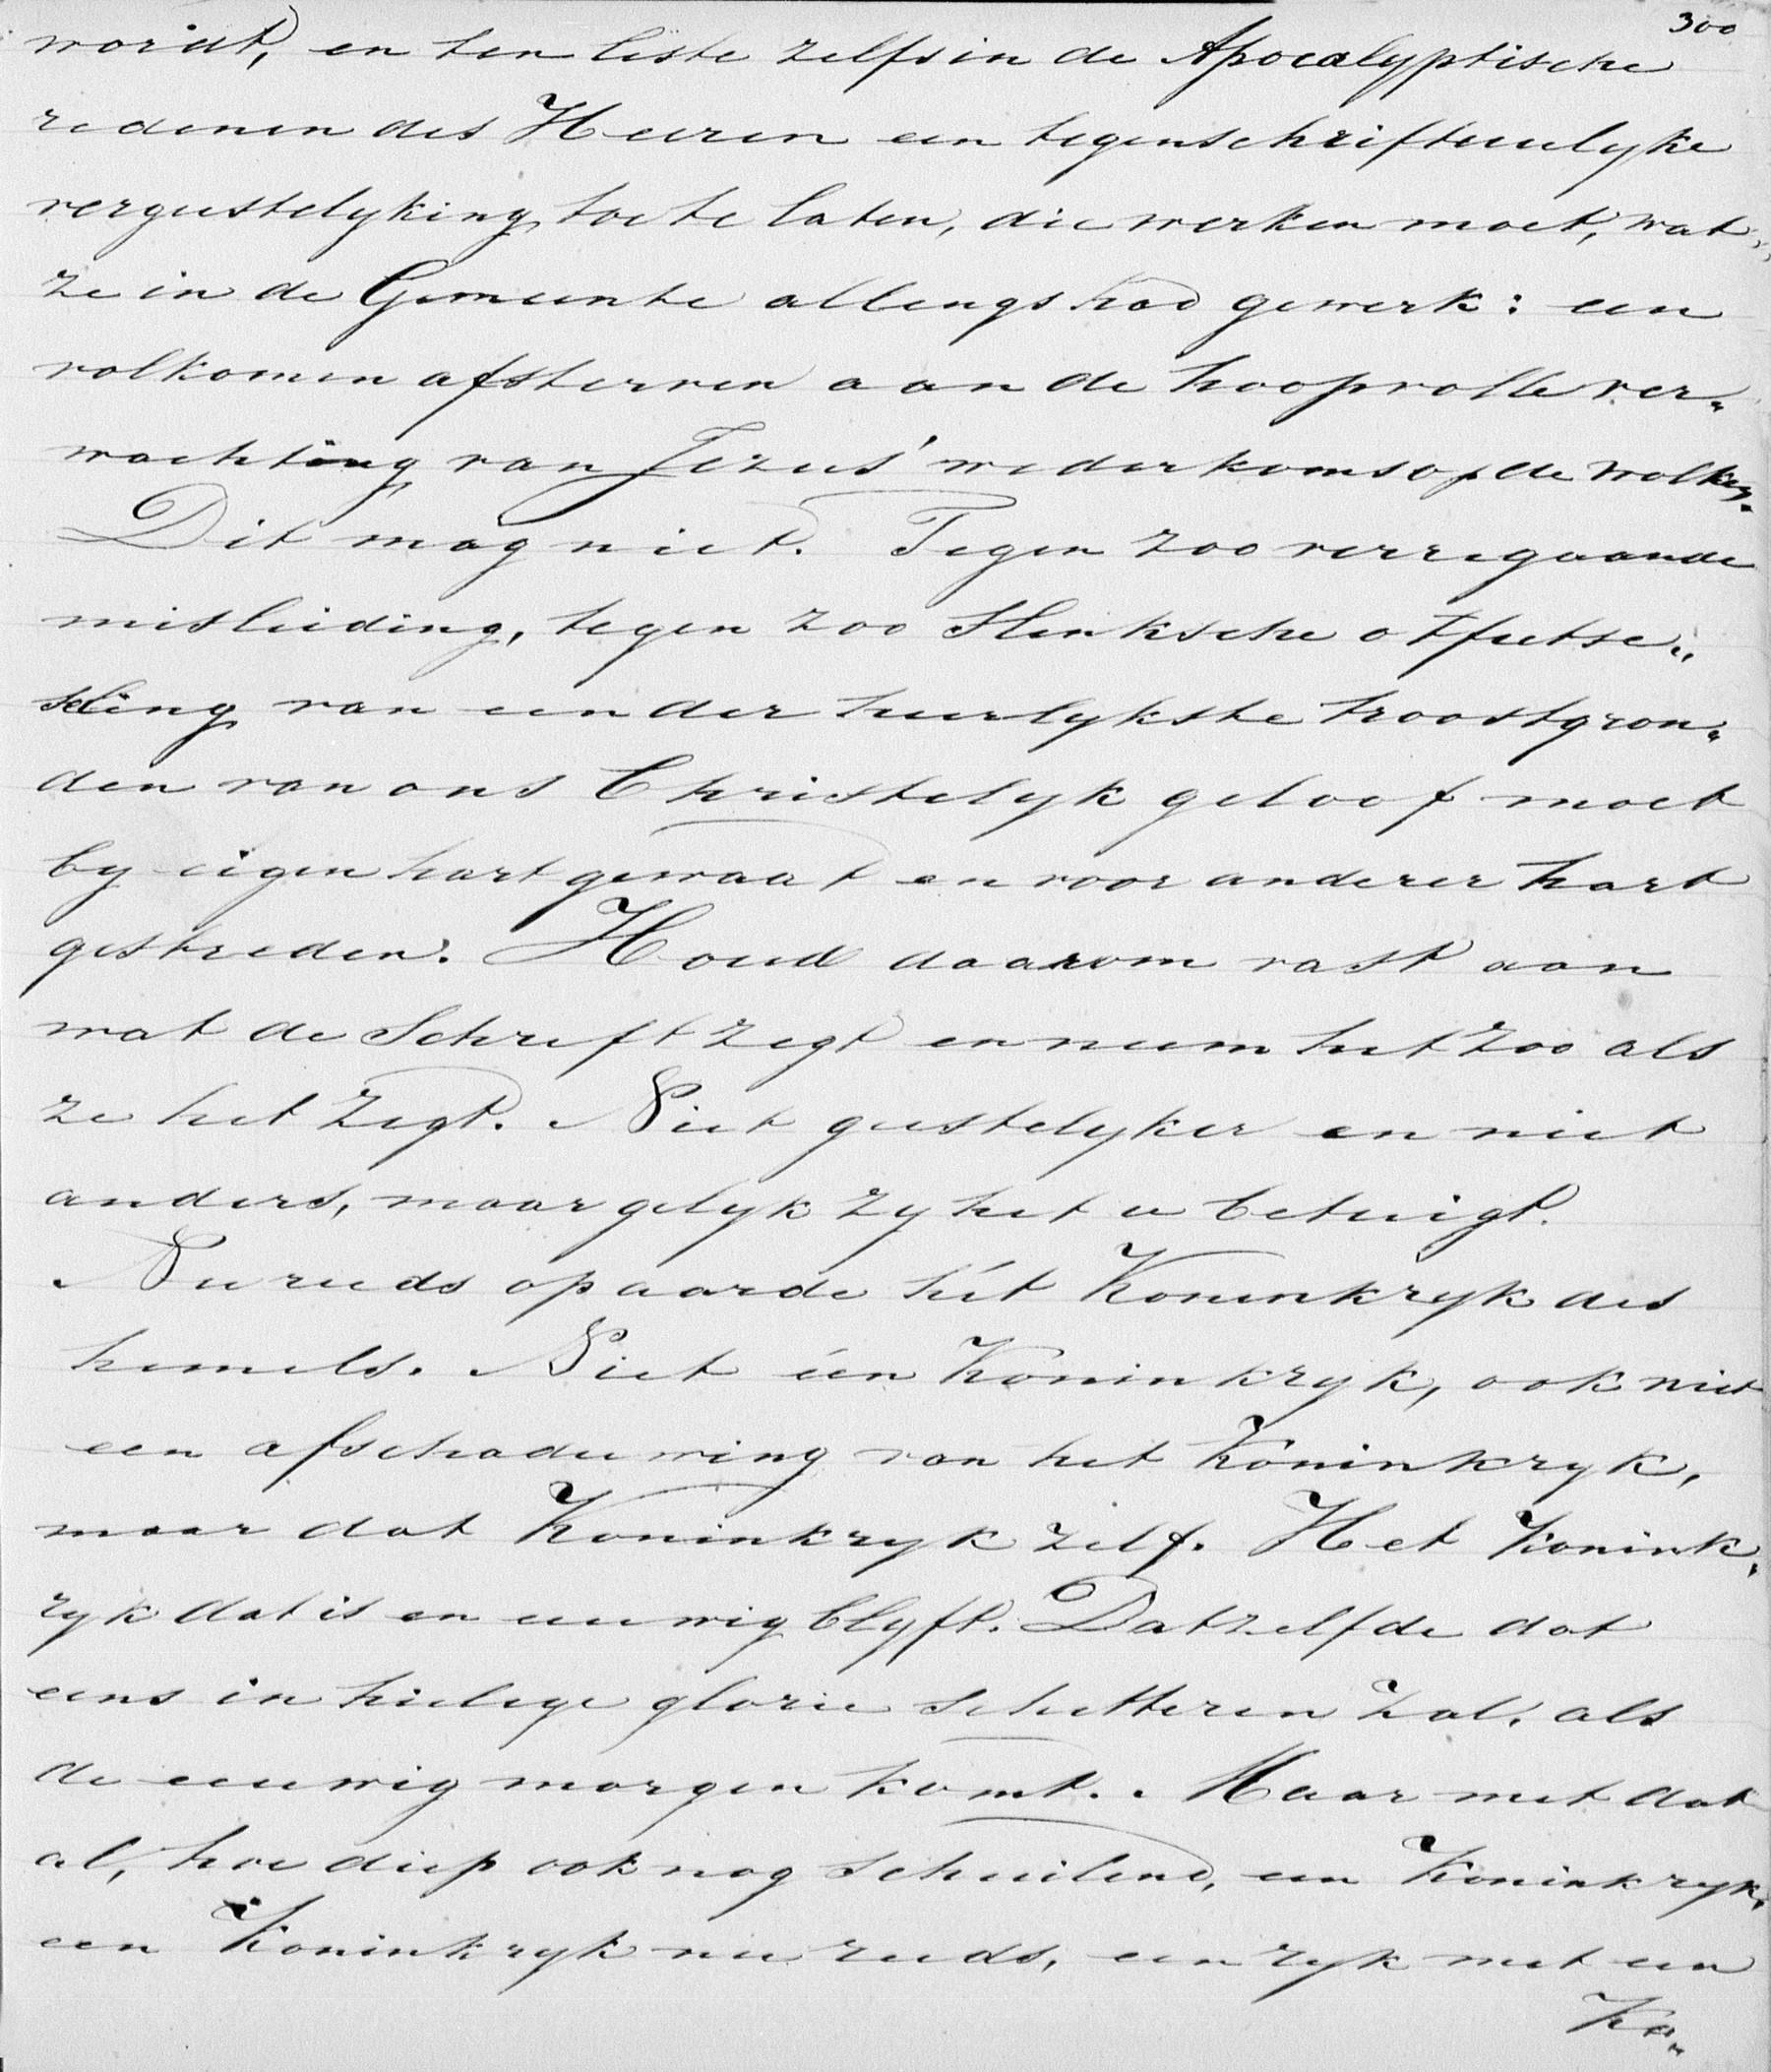 300
wordt, en ten leste zelfs in de Apocalyptische
redenen des Heeren een tegenschriftuulyke
vergeestelyking toe te laten, die werken moet, wat
ze in de Gemeente allengs had gewerk: een
volkomen afsterven aan de hoopvolle ver„
wachting van Jezus' wederkoms op de wolken.
Dit mag niet. Tegen zoo verregaande
misleiding, tegen zoo slinksche otfutse„
seling van een der heerlykste troostgron„
den van ons Christelyk geloof moet
by eigen hart gewaat en voor anderer hart
gestreden. Houd daarom vast aan
wat de Schrift zegt en neem het zoo als
ze het zegt. Niet geestelyker en niet
anders, maar gelyk zy het u betuigt.
Nu reeds op aarde hét Koninkryk des
hemels. Niet één Koninkryk, ook niet
een afschaduwing van het Koninkryk,
maar dat Koninkryk zelf. Het Konink„
ryk dat is en eeuwig blyft. Datzelfde dat
eens in hielige glorie schetteren zal, als
de eeuwig morgen komt. Maar met dat
al, hoe diep ook nog schuilend, een Koninkryk,
een Koninkryk nu reeds, een ryk met een
Ko„